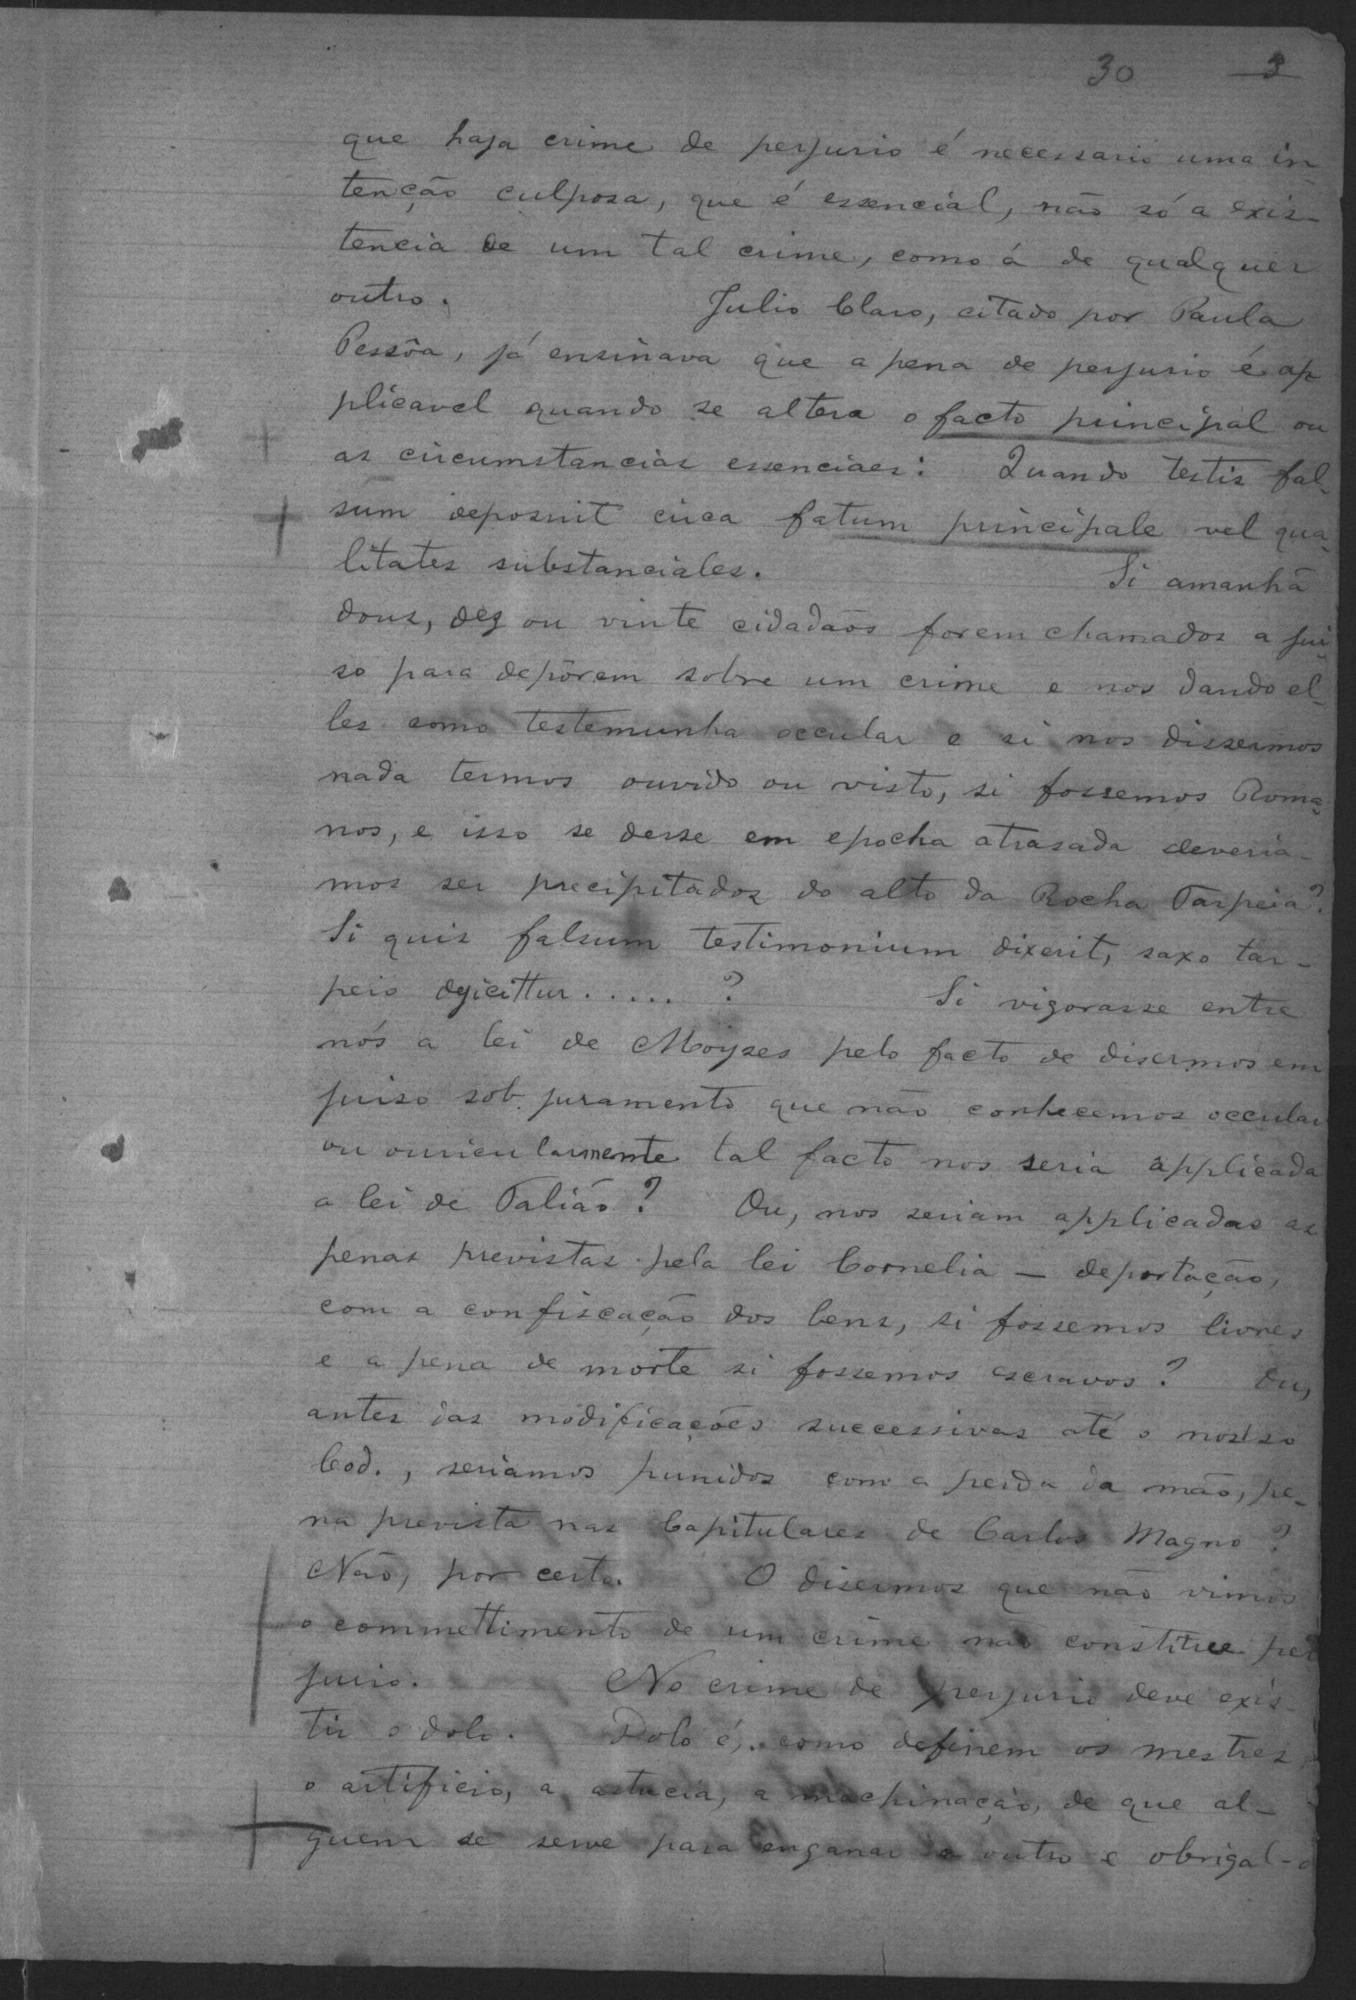 30 3
que haja crime de perjurio é necessario uma in
tenção culposa, que é essencial, não só a exis-
tencia de um tal crime, como á de qualquer
outro. Julio Claro, citado por Paula
Pessôa, já ensinava que a pena de perjurio é ap
plicavel quando se altera o facto principal ou
as circumstancias essenciaes: Quando testis fal-
sum deposuit circa fatum principale vel qua-
litates substanciales. Si amanhã
dous, dez ou vinte cidadãos forem chamados a jui-
so para depôrem sobre um crime e nos dando el-
les como testemunha occular e si nos dissermos
nada termos ouvido ou visto, si fossemos Roma-
nos, e isso se desse em epocha atrasada deveria-
mos ser precipitados do alto da Rocha Tarpeia?
Si quis falsum testimonium dixerit, saxo tar-
peio dejicittur..... ? Si vigorasse entre
nós a lei de Moyses pelo facto de disermos em
juiso sob juramento que não conhecemos occular
ou ouricularmente tal facto nos seria applicada
a lei de Talião? Ou, nos seriam applicadas as
penas previstas pela lei Cornelia — deportação,
com a confiscação dos bens, si fossemos livres
e a pena de morte si fossemos escravos? Ou,
antes das modificações successivas até o nosso
Cod., seriamos punidos com a perda da mão, pe-
na prevista nas Capitulares de Carlos Magno?
Não, por certo. O disermos que não vimos
o commettimento de um crime não constitue per
jurio. No crime de perjurio deve exis-
tir o dolo. Dolo é, como definem os mestres
o artificio, a astucia, a machinação, de que al-
guem se serve para enganar a outro e obrigal-o